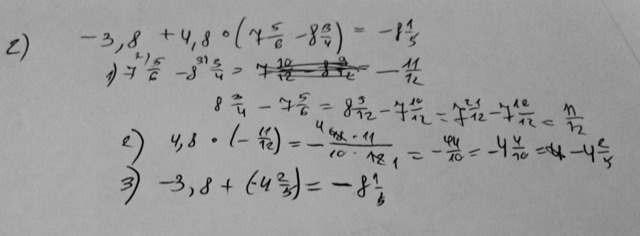 2) -3,8 + 4,8 · (7 5/6 - 8 3/4) = -8 1/5
1) 7 5/6 - 8 3/4 = - 11/12
8 3/4 - 7 5/6 = 8 9/12 - 7 10/12 = 7 21/12 - 7 10/12 = 11/12
2) 4,8 · (- 11/12) = - 48 · 11 / 10 · 12 = - 44/10 = -4 4/10 = -4 2/5
3) -3,8 + (-4 2/5) = -8 1/5